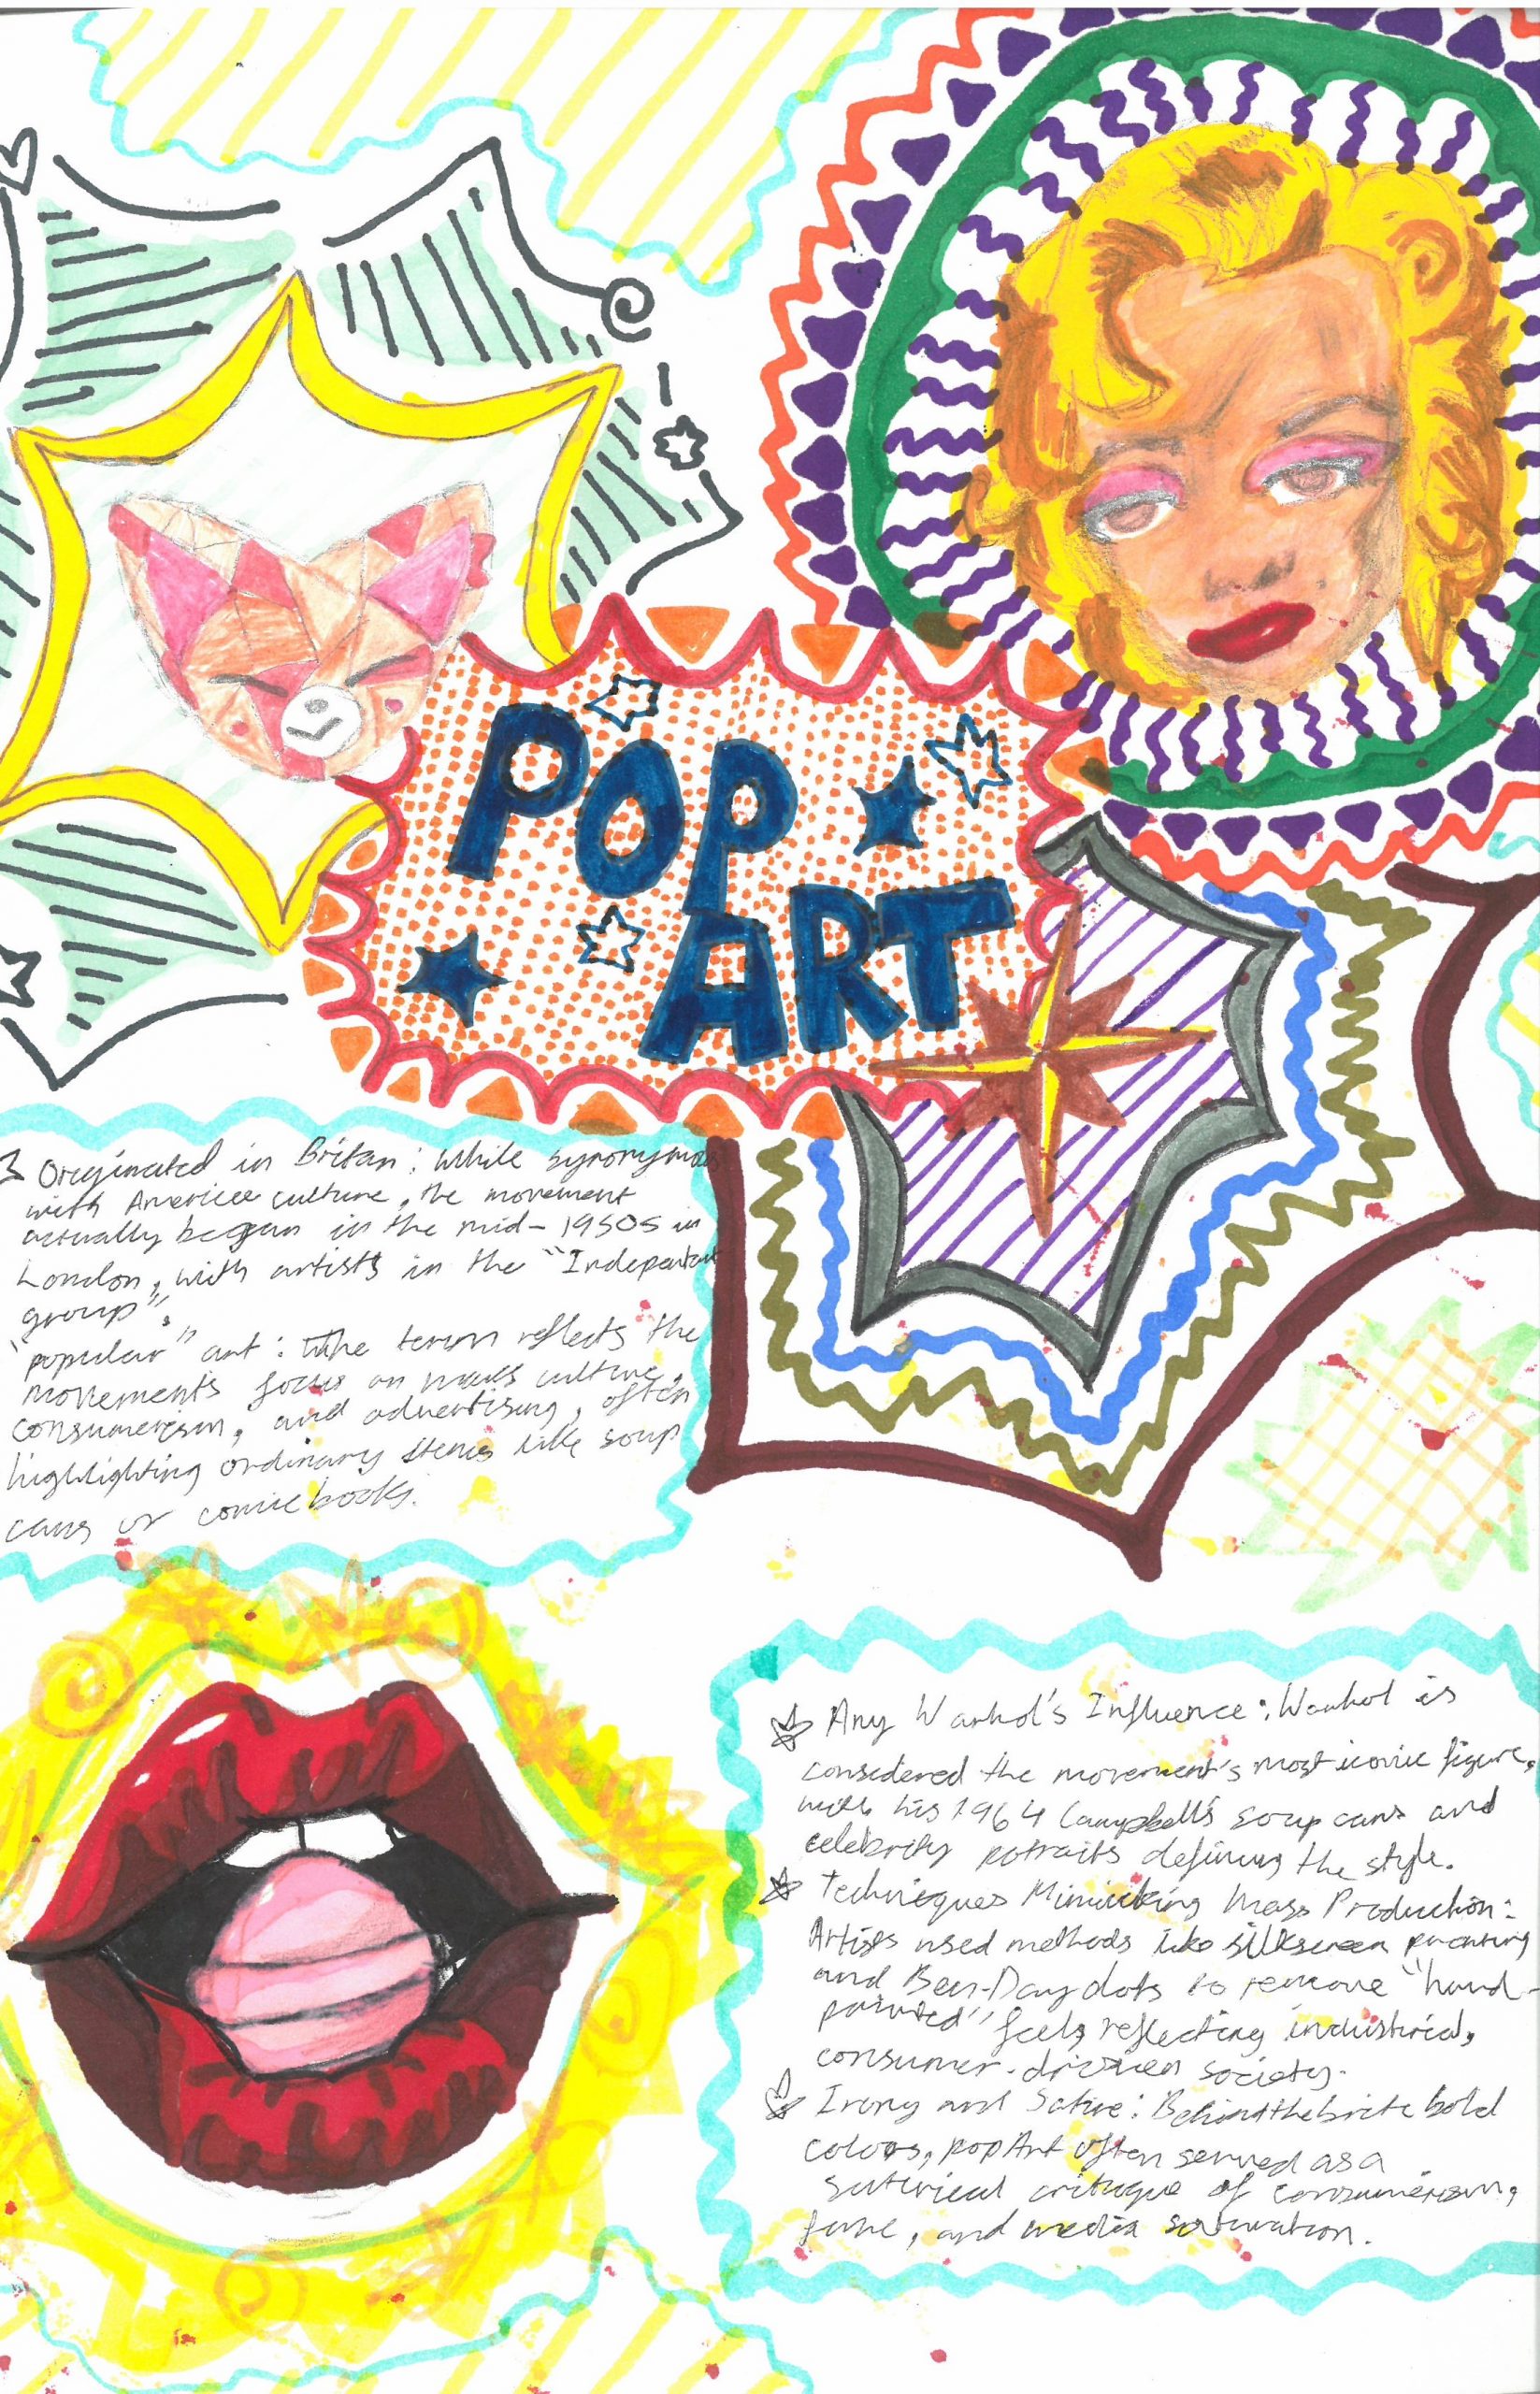 POP
ART
Originated in Britan: while synonymous
with Americe culture, the movement
actually began in the mid-1950s in
London, with artists in the "Independant
group".
"popular" art: The term reflects the
movements focus on mass culture,
consumerism, and advertising, often
highlighting ordinary items like soup
cans or comic books.
Any Warhol's Influence: Warhol is
considered the movement's most iconic figure,
with his 1964 Campbell's soup cans and
celebrity potraits defining the style.
Techniques Mimicking Mass Production:
Artists used methods like silkscreen
and Ben-Day dots to remove "hand-
painted" feels, reflecting industrial,
consumer-driven society.
Irony and Satire: Behind the brite bold
colors, pop Art often served as a
saterical critique of consumerism,
fame, and media saturation.